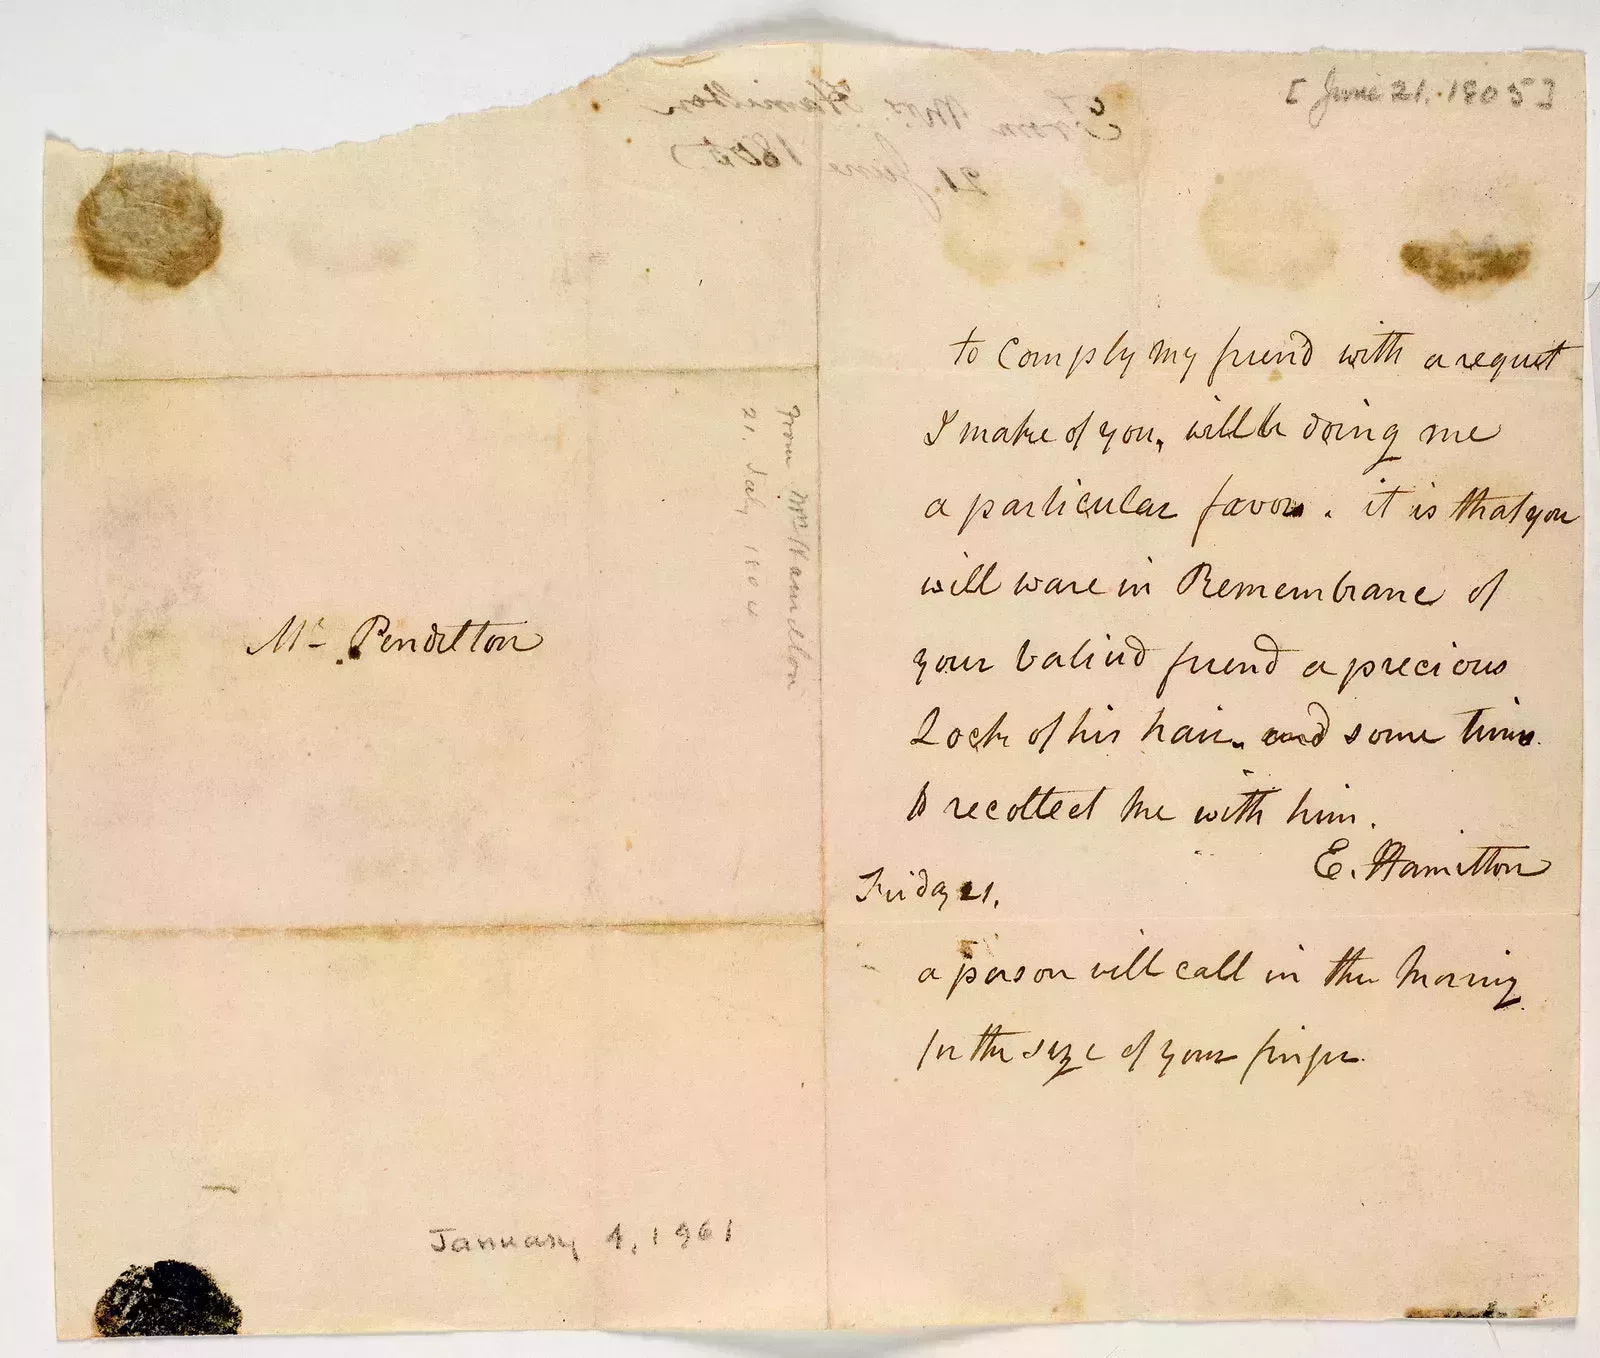 [June 21, 1805]
From Mrs. Hamilton
21 June 180
From Mrs Hamilton
21. July 1804
Mr Pendelton
January 4, 1961
to Comply my friend with a request
I make of you, will be doing me
a particular favor. it is that you
will ware in Remembrance of
your beliud friend a precious
Lock of his hair. and some times
to recollect me with him.
E. Hamilton
Friday 21.
a person will call in the Morning
for the size of your finger.